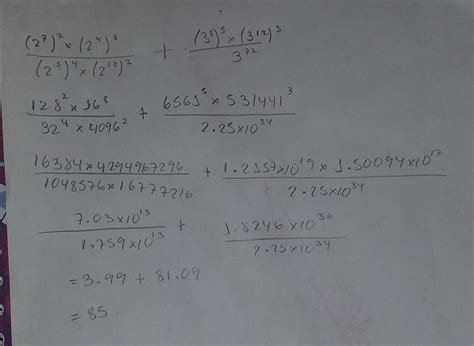 (2⁷)² × (2⁴)⁸ / (2⁵)⁴ × (2¹²)² + (3⁸)⁵ × (3¹²)³ / 3⁷²
128² × 16⁸ / 32⁴ × 4096² + 6561⁵ × 531441³ / 2.25×10³⁴
16384 × 4294967296 / 1048576 × 16777216 + 1.2157×10¹⁹ × 1.50094×10¹⁷ / 2.25×10³⁴
7.03×10¹³ / 1.759×10¹³ + 1.8246×10³⁶ / 2.25×10³⁴
= 3.99 + 81.09
= 85